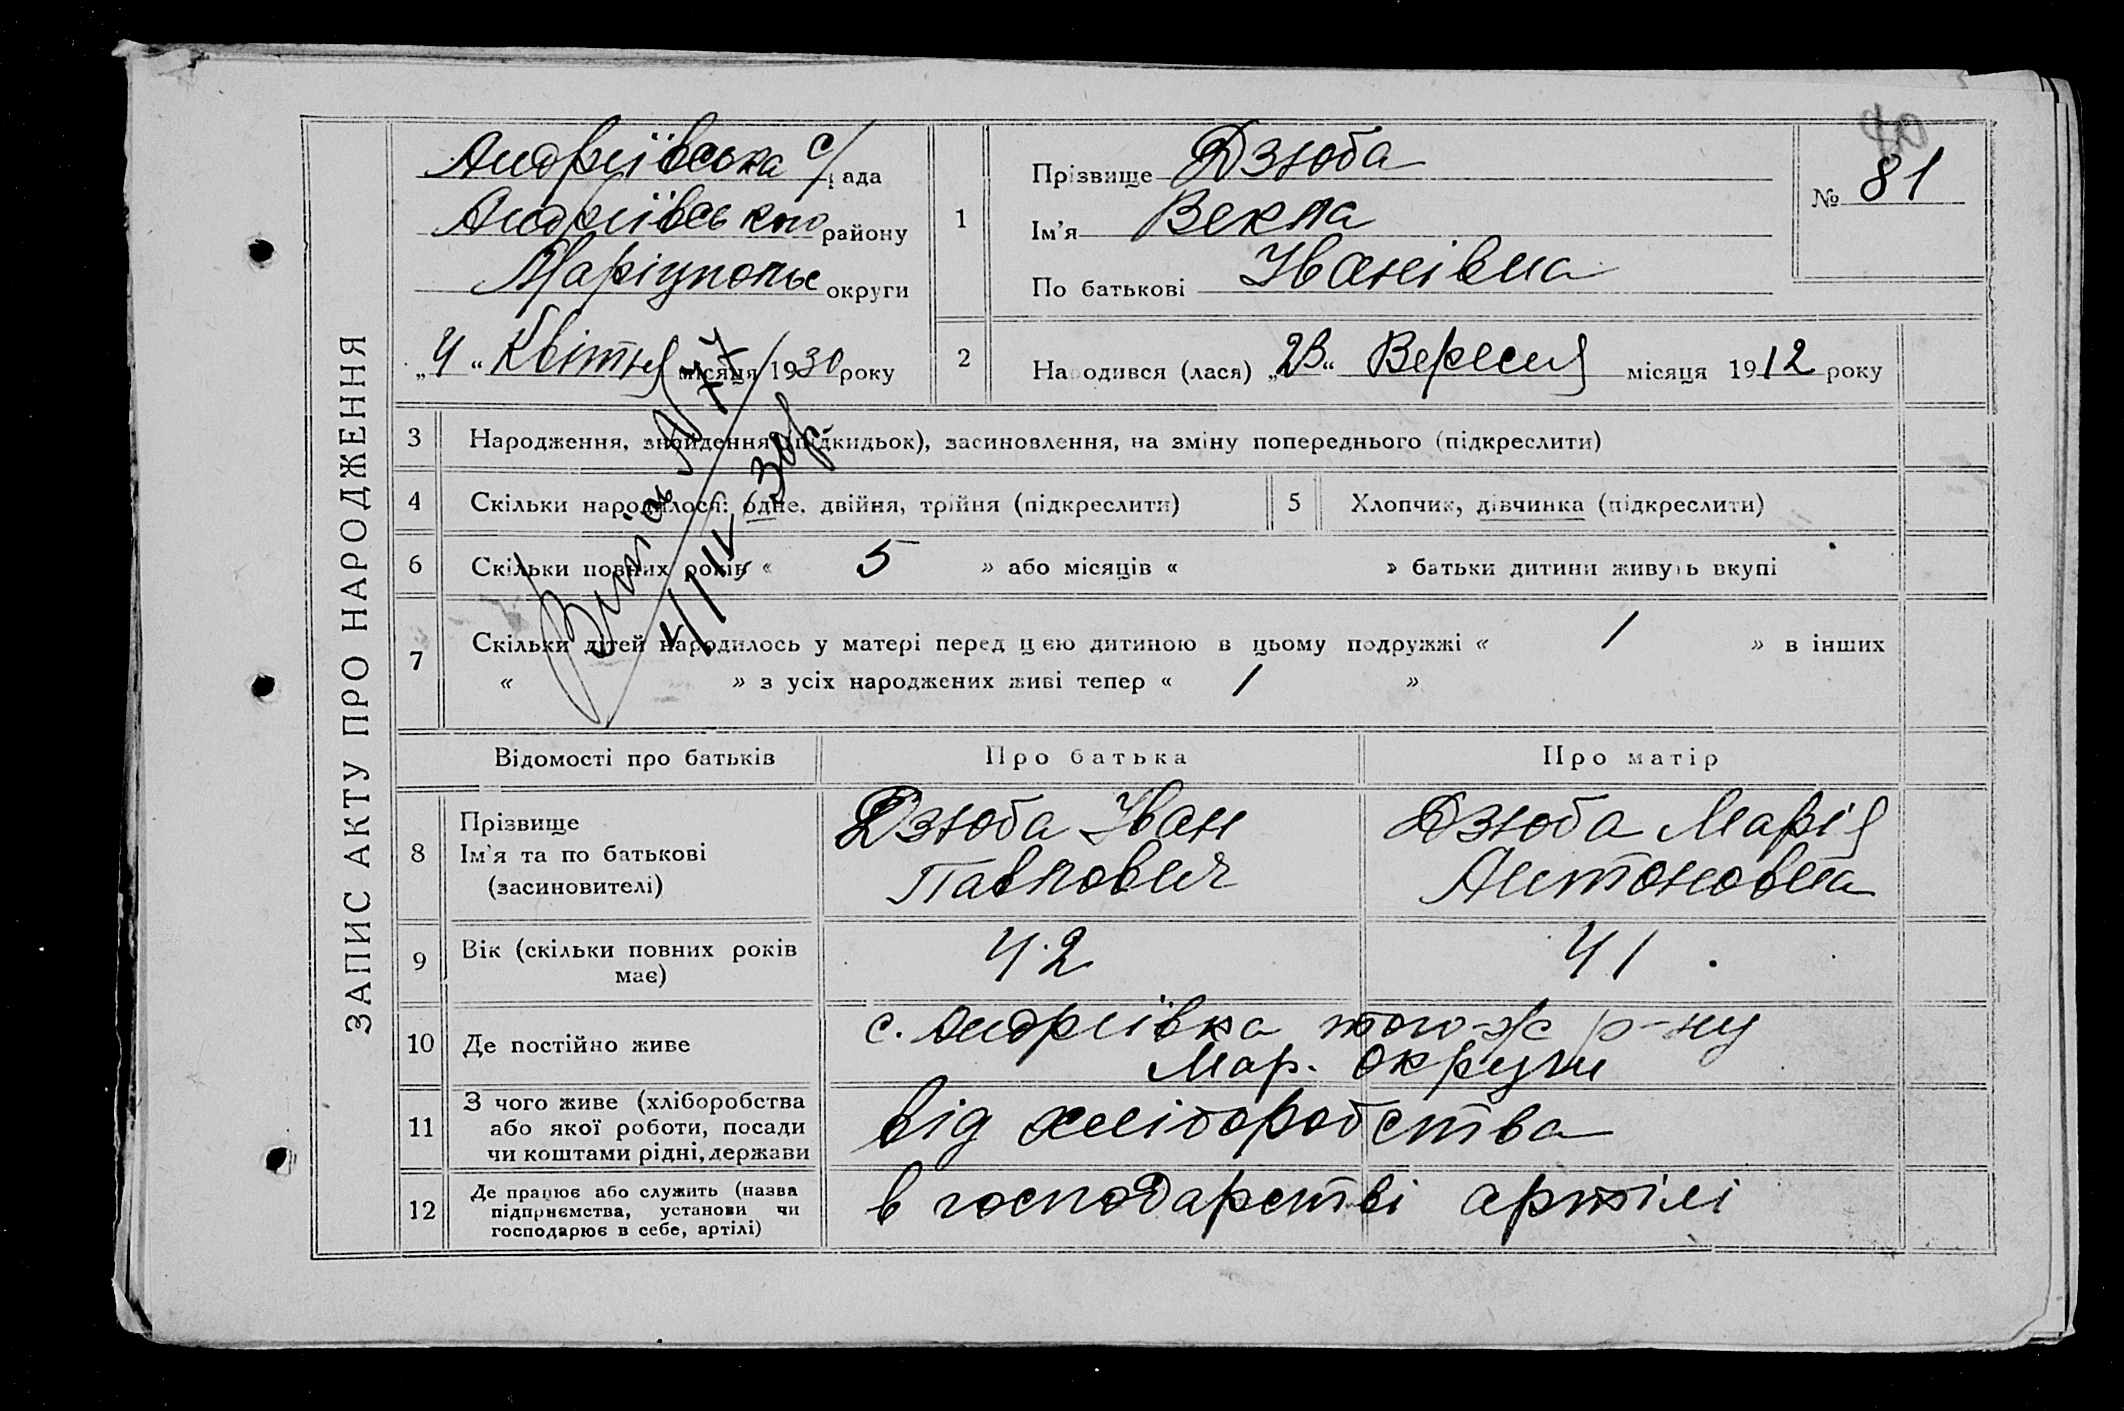 ЗАПИС АКТУ ПРО НАРОДЖЕННЯ
Андріївська с/рада
Андріївського району
Маріупольс округи
„4“ Квітня місяця 1930 року
40
№ 81
1 Прізвище Дзюба
Ім'я Векла
По батькові Іванівна
2 Народився (лася) „23“ Вересня місяця 1912 року
3 Народження, знайдення (підкидьок), засиновлення, на зміну попереднього (підкреслити)
4 Скільки народилося: одне, двійня, трійня (підкреслити)
5 Хлопчик, дівчинка (підкреслити)
6 Скільки повних років « 5 » або місяців « » батьки дитини живуть вкупі
7 Скільки дітей народилось у матері перед цією дитиною в цьому подружжі « 1 » в інших
« » з усіх народжених живі тепер « 1 »
№ 77
4/IV 30р.
Відомості про батьків Про батька Про матір
8 Прізвище
Ім'я та по батькові
(засиновителі)
Дзюба Іван
Павлович
Дзюба Марія
Антоновна
9 Вік (скільки повних років
має)
42
41
10 Де постійно живе
с. Андріївка того-ж р-ну
Мар. Округи
11 З чого живе (хліборобства
або якої роботи, посади
чи коштами рідні, держави
від хліборобства
12 Де працює або служить (назва
підприємства, установи чи
господарює в себе, артілі)
в господарстві артілі